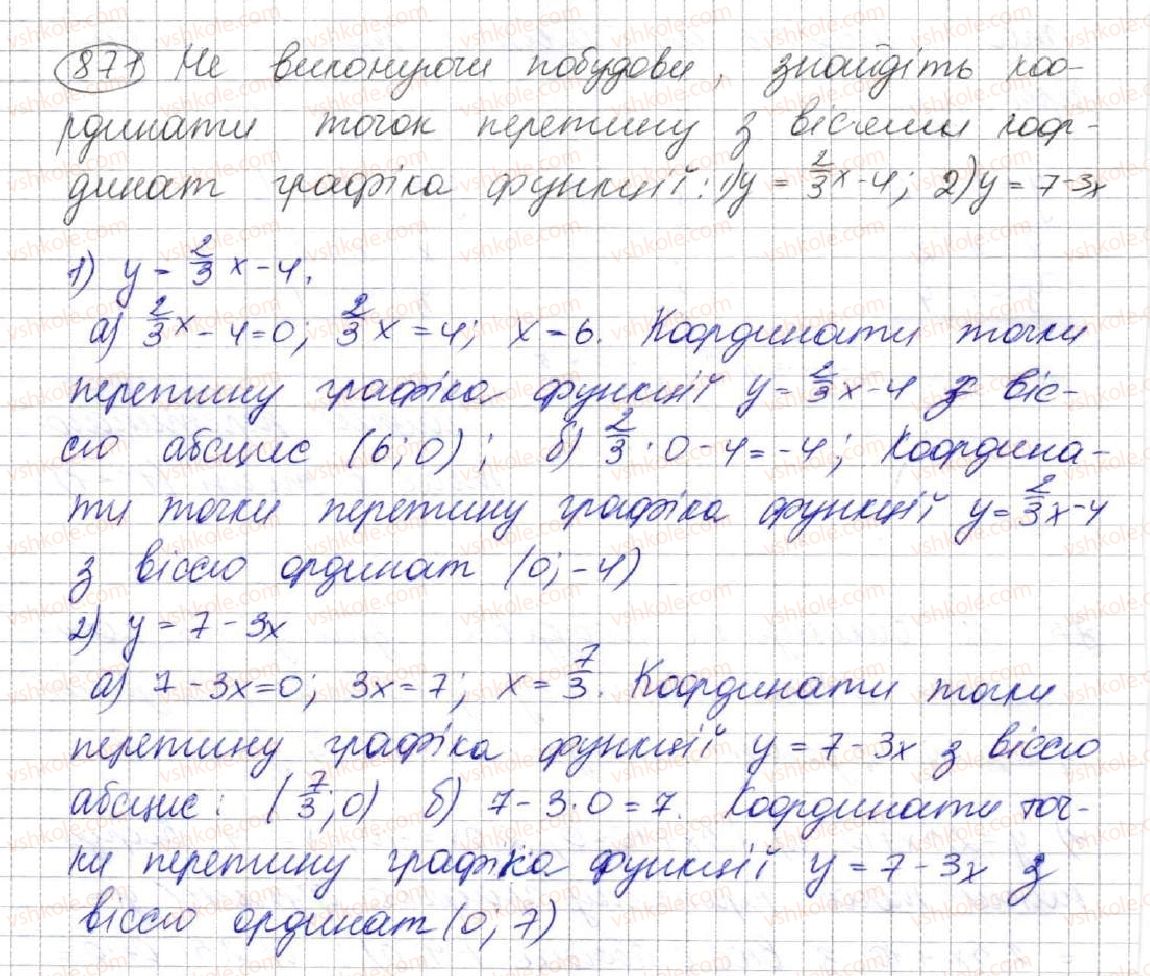 871 Не виконуючи побудови, знайдіть коо-
рдинати точок перетину з вісями коор-
динат графіка функції: 1) y = 2/3 x - 4; 2) y = 7 - 3x
1) y = 2/3 x - 4.
а) 2/3 x - 4 = 0; 2/3 x = 4; x = 6. Координати точки
перетину графіка функції y = 2/3 x - 4 з віс-
сю абсцис (6; 0); б) 2/3 · 0 - 4 = -4; Координа-
ти точки перетину графіка функції y = 2/3 x - 4
з віссю ординат (0; -4)
2) y = 7 - 3x
а) 7 - 3x = 0; 3x = 7; x = 7/3. Координати точки
перетину графіка функції y = 7 - 3x з віссю
абсцис: (7/3; 0) б) 7 - 3 · 0 = 7. Координати точ-
ки перетину графіка функції y = 7 - 3x з
віссю ординат (0; 7)